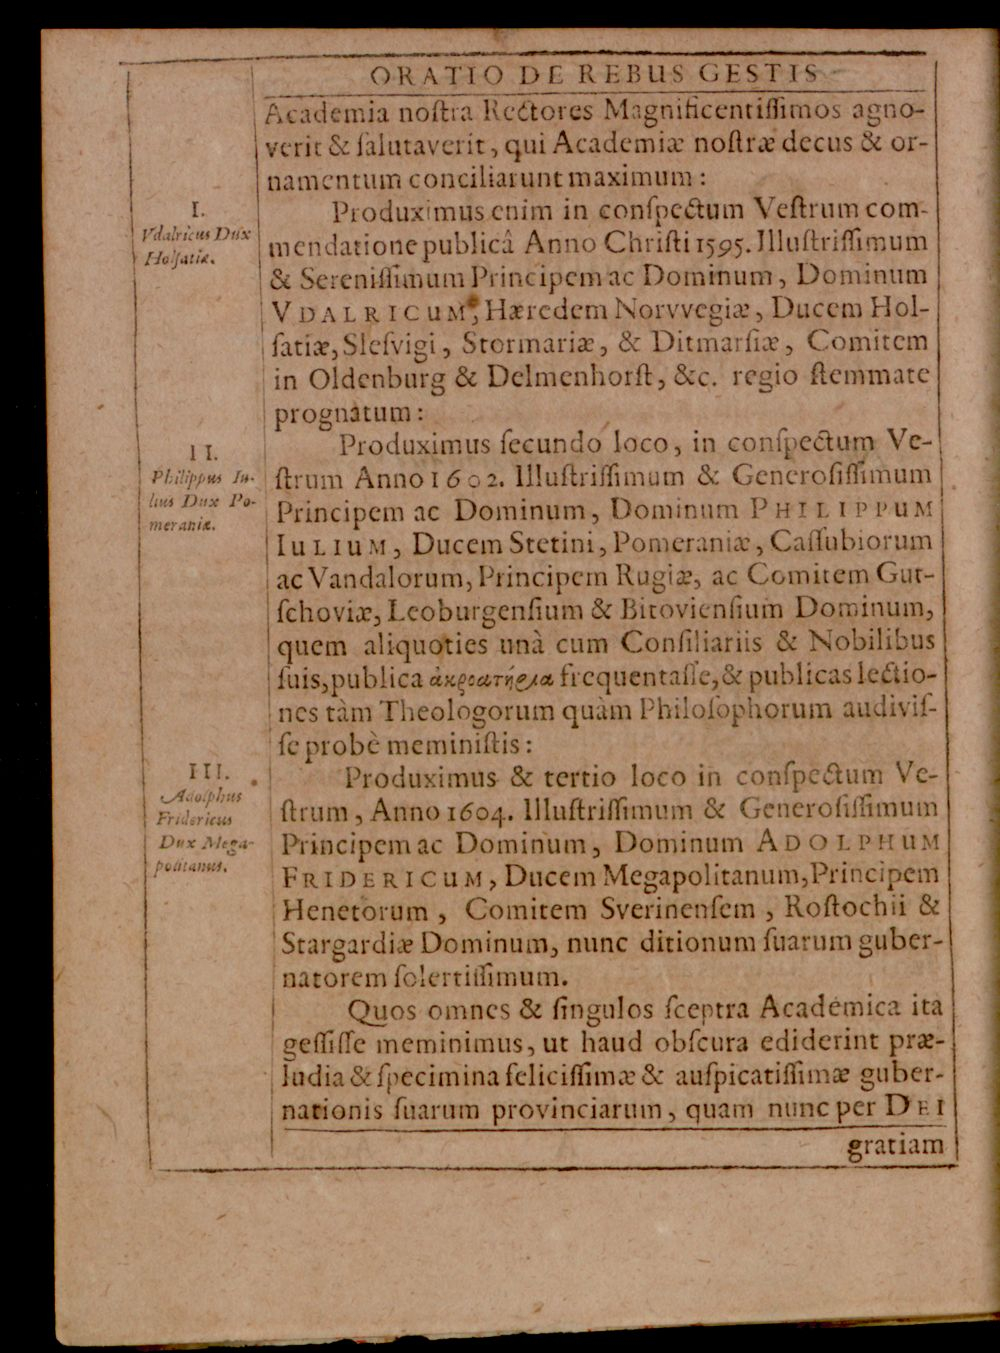 ORATIO DE REBUS GESTIS
Academia noſtra Rectores Magnificentiſſimos agno-
verit & ſalutaverit, qui Academiæ noſtræ decus & or-
namentum conciliarunt maximum:
I.
Vdalricus Dux
Holſatiæ.
Produximus enim in conſpectum Veſtrum com-
mendatione publicâ Anno Chriſti 1595. Illuſtriſſimum
& Sereniſſimum Principem ac Dominum, Dominum
VDALRICUM, Hæredem Norvvegiæ, Ducem Hol-
ſatiæ, Sleſvigi, Stormariæ, & Ditmarſiæ, Comitem
in Oldenburg & Delmenhorſt, &c. regio ſtemmate
prognatum:
II.
Philippus Iu-
lius Dux Po-
meraniæ.
Produximus ſecundo loco, in conſpectum Ve-
ſtrum Anno 1602. Illuſtriſſimum & Generoſiſſimum
Principem ac Dominum, Dominum PHILIPPUM
IULIUM, Ducem Stetini, Pomeraniæ, Caſſubiorum
ac Vandalorum, Principem Rugiæ, ac Comitem Gut-
ſchoviæ, Leoburgenſium & Bitovienſium Dominum,
quem aliquoties unà cum Conſiliariis & Nobilibus
ſuis, publica ἀκροατήρια frequentaſſe, & publicas lectio-
nes tàm Theologorum quàm Philoſophorum audiviſ-
ſe probè meminiſtis:
III.
Adolphus
Fridericus
Dux Mega-
politanus.
Produximus & tertio loco in conſpectum Ve-
ſtrum, Anno 1604. Illuſtriſſimum & Generoſiſſimum
Principem ac Dominum, Dominum ADOLPHUM
FRIDERICUM, Ducem Megapolitanum, Principem
Henetorum, Comitem Sverinenſem, Roſtochii &
Stargardiæ Dominum, nunc ditionum ſuarum guber-
natorem ſolertiſſimum.
Quos omnes & ſingulos ſceptra Academica ita
geſſiſſe meminimus, ut haud obſcura ediderint præ-
ludia & ſpecimina feliciſſimæ & auſpicatiſſimæ guber-
nationis ſuarum provinciarum, quam nunc per DEI
gratiam